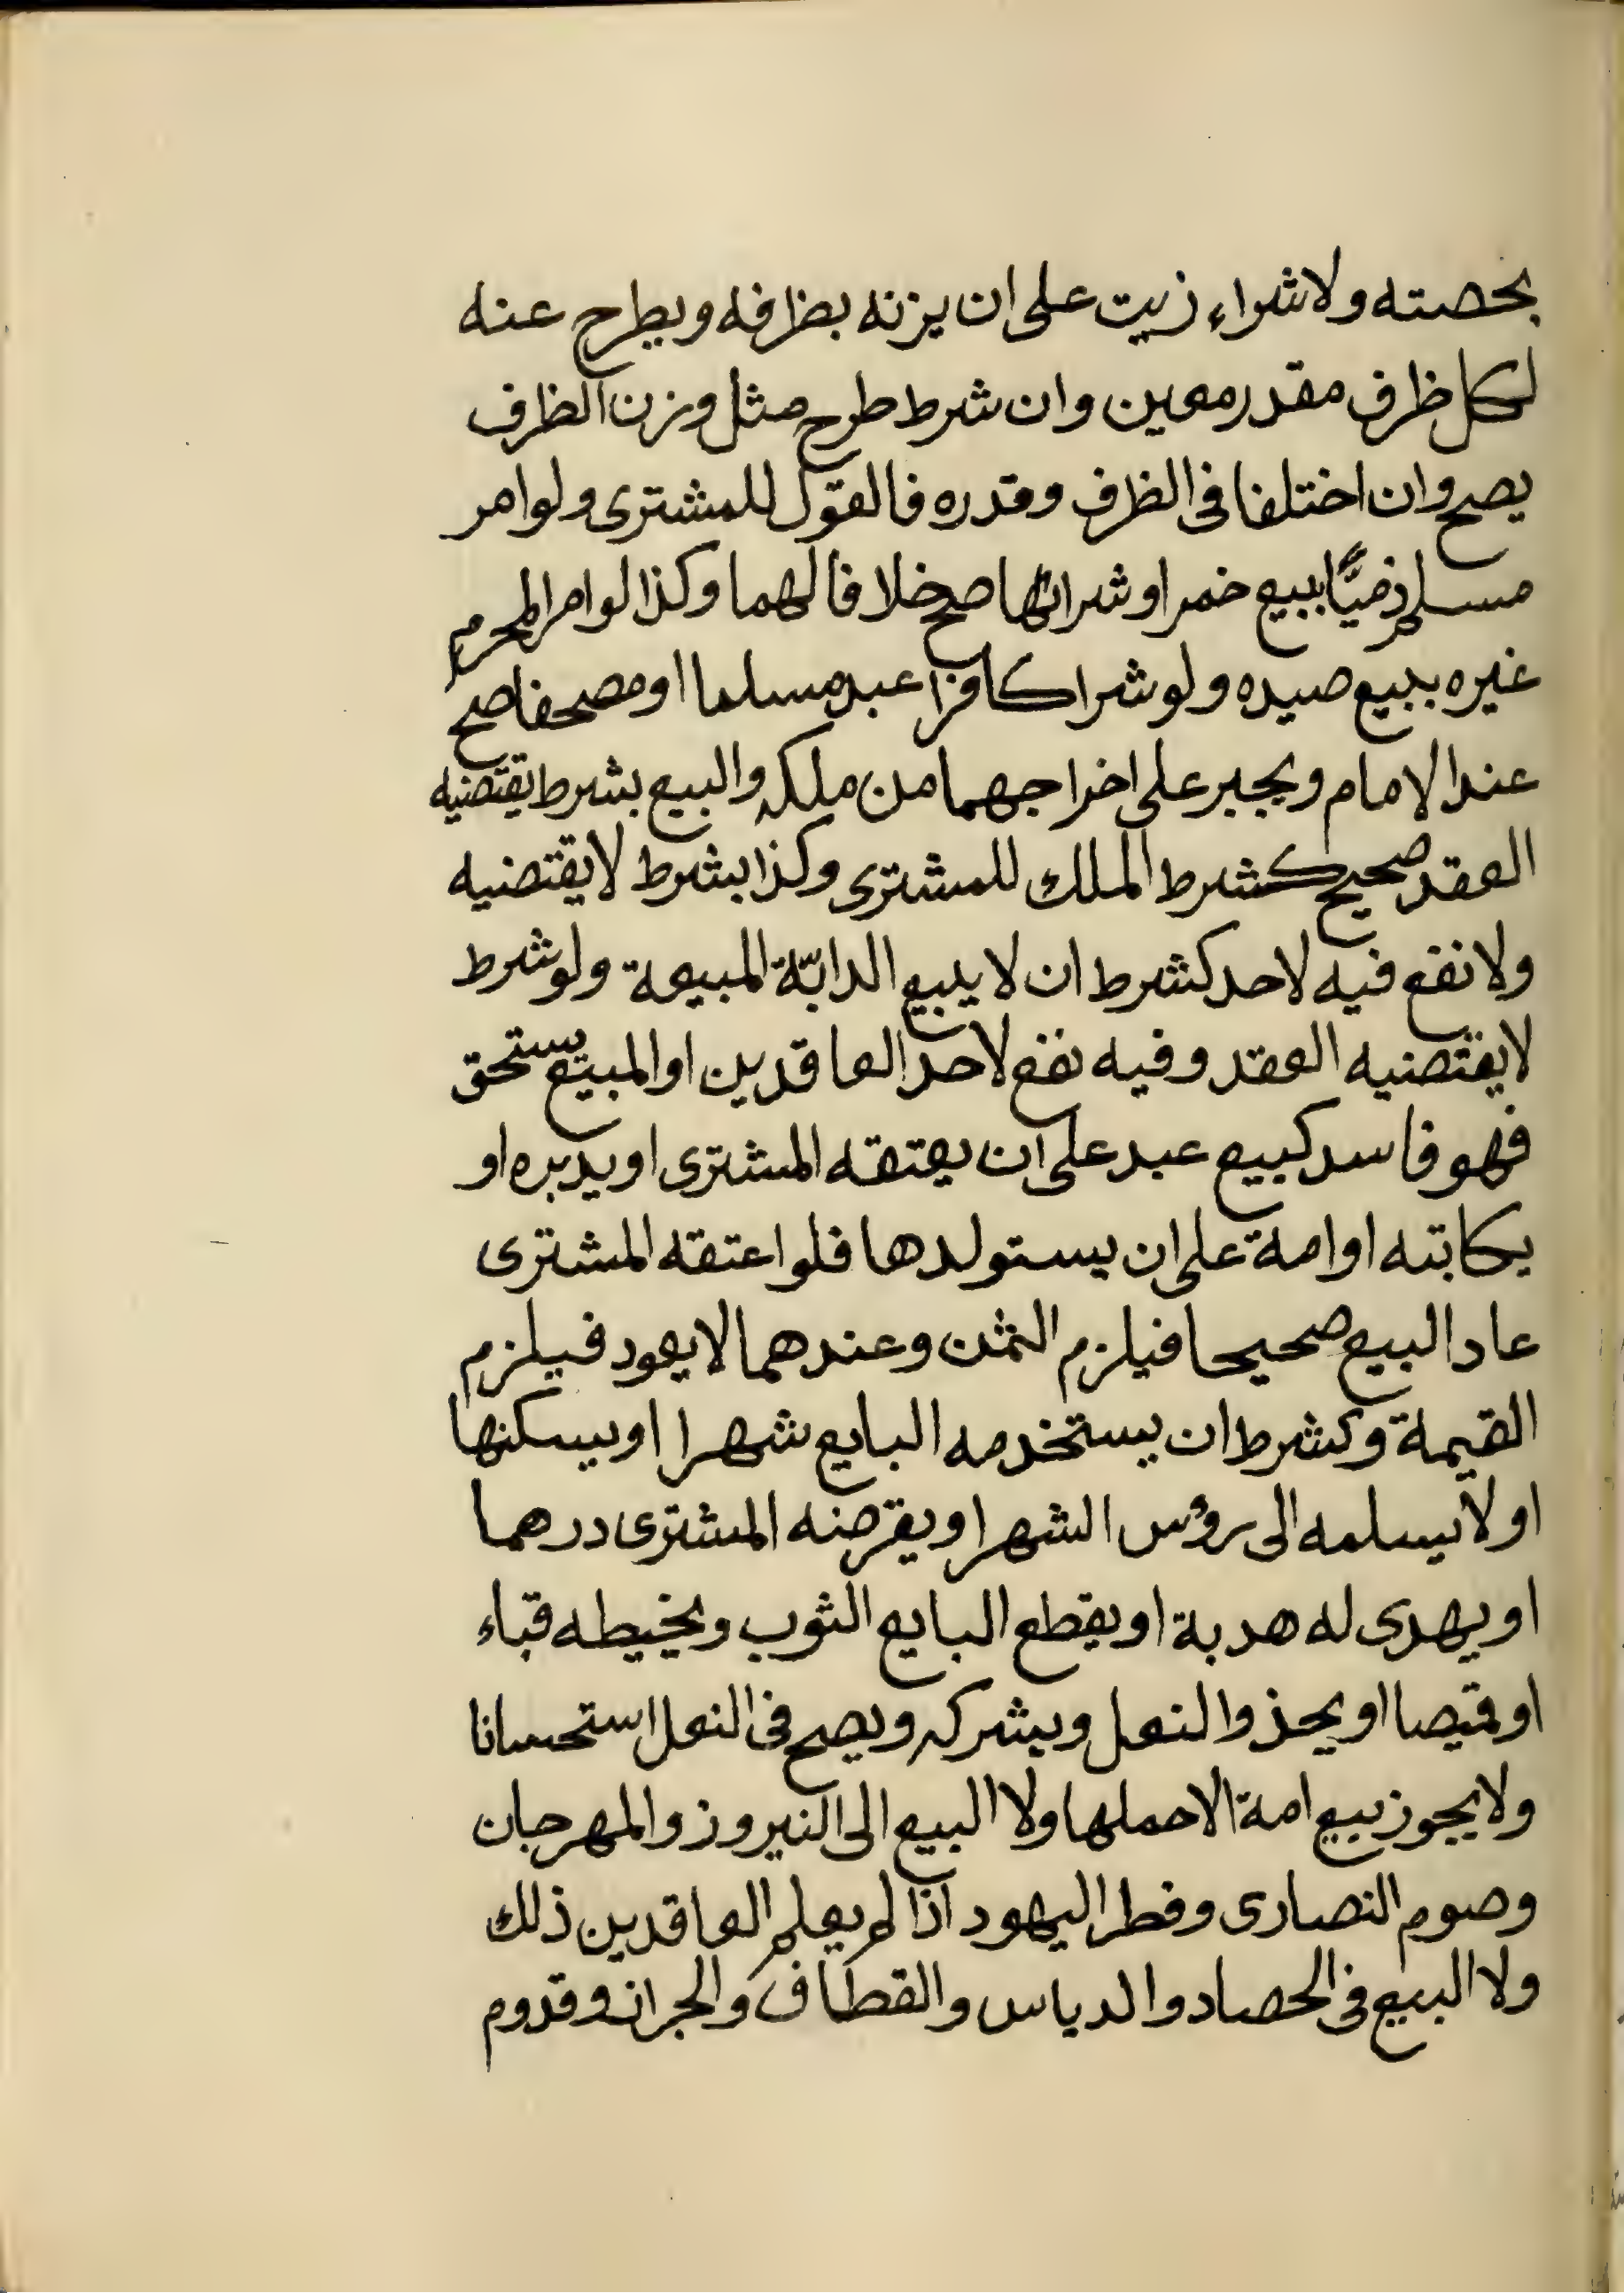 بحصته ولا شراء زيت على ان يزنه بظرفه ويطرح عنه
لكل ظرف مقدر معين وان شرط طرح مثل وزن الظرف
يصح وان اختلفا فى الظرف وقدره فالقول للمشترى ولو امر
مسلم ذميًّا ببيع خمر او شرائها صح خلافا لهما وكذا لو امر المحرم
غيره ببيع صيده ولو شرا كافرا عبد مسلما او مصحفا صح
عند الامام ويجبر على اخراجهما من ملكه والبيع بشرط يقتضيه
العقد صحيح كشرط الملك للمشترى وكذا بشرط لا يقتضيه
ولا نفع فيه لاحد كشرط ان لا يبيع الدابّة المبيعة ولو شرط
لا يقتضيه العقد وفيه نفع لاحد العاقدين او المبيع يستحق
فهو فاسد كبيع عبد على ان يعتقه المشترى او يدبره او
يكاتبه او امة على ان يستولدها فلو اعتقه المشترى
عاد البيع صحيحا فيلزم الثمن وعندهما لا يعود فيلزم
القيمة وكشرط ان يستخدمه البايع شهرا او يسكنها
او لا يسلمه الى رؤس الشهر او يقرضنه المشترى درهما
او يهدى له هدية او يقطع البايع الثوب ويخيطه قباء
او قميصا او يحذو النعل ويشركه ويصح فى النعل استحسانا
ولا يجوز بيع امة الا حملها ولا البيع الى النيروز والمهرجان
وصوم النصارى وفطر اليهود اذا لم يعلم العاقدين ذلك
ولا البيع فى الحصاد والدياس والقطاف والجران وقدوم